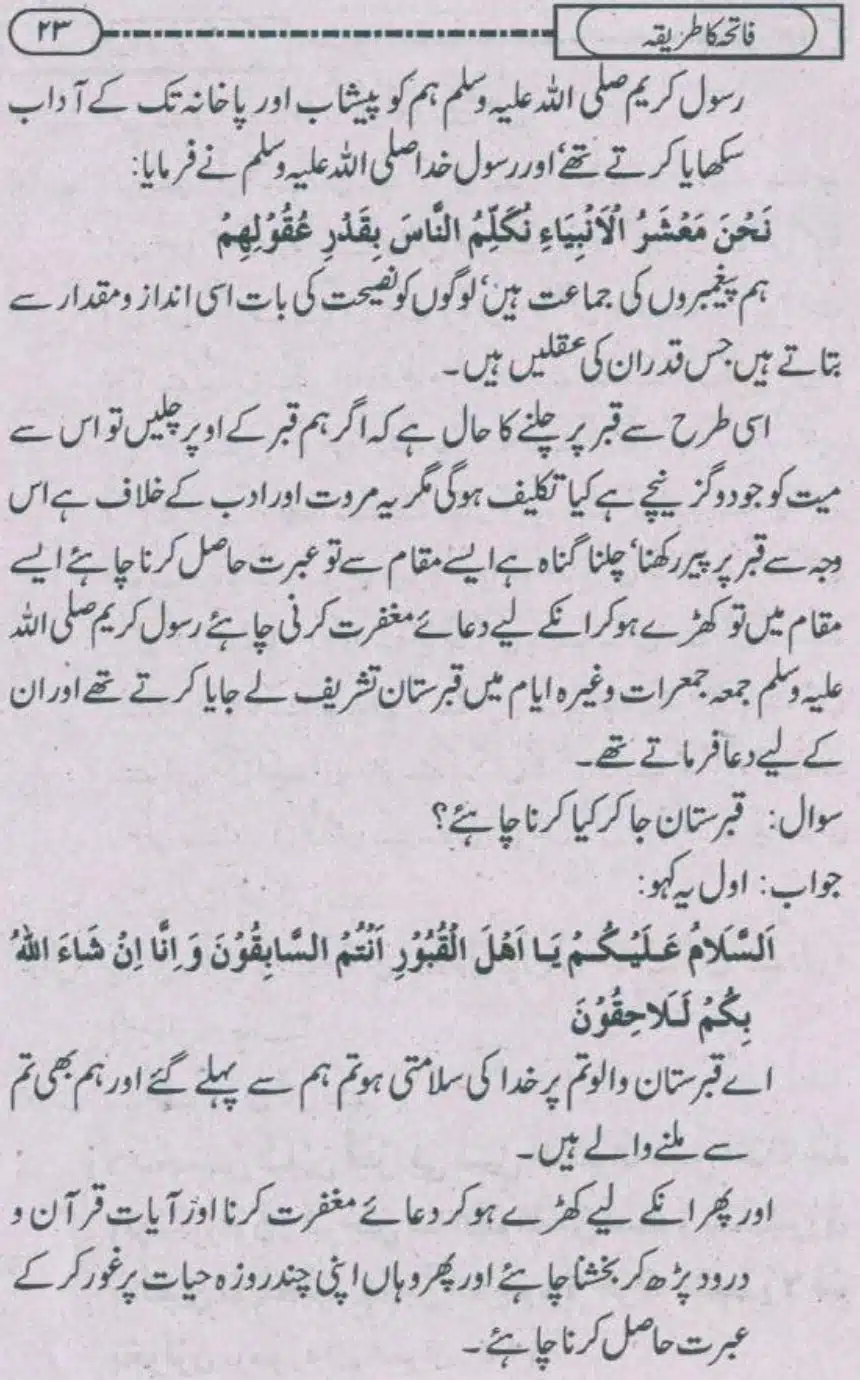 فاتحہ کا طریقہ ۲۳
رسول کریم صلی اللہ علیہ وسلم ہم کو پیشاب اور پاخانہ تک کے آداب
سکھایا کرتے تھے‘ اور رسول خدا صلی اللہ علیہ وسلم نے فرمایا:
نَحْنَ مَعْشَرُ الْاَنْبِیَاءِ نُکَلِّمُ النَّاسَ بِقَدْرِ عُقُوْلِهِمْ
ہم پیغمبروں کی جماعت ہیں‘ لوگوں کو نصیحت کی بات اسی انداز و مقدار سے
بتاتے ہیں جس قدر ان کی عقلیں ہیں۔
اسی طرح سے قبر پر چلنے کا حال ہے کہ اگر ہم قبر کے اوپر چلیں تو اس سے
میت کو جو دو گز نیچے ہے کیا تکلیف ہوگی مگر یہ مروت اور ادب کے خلاف ہے اس
وجہ سے قبر پر پیر رکھنا‘ چلنا گناہ ہے ایسے مقام سے تو عبرت حاصل کرنا چاہئے ایسے
مقام میں تو کھڑے ہوکر انکے لیے دعائے مغفرت کرنی چاہئے رسول کریم صلی اللہ
علیہ وسلم جمعہ جمعرات وغیرہ ایام میں قبرستان تشریف لے جایا کرتے تھے اور ان
کے لیے دعا فرماتے تھے۔
سوال: قبرستان جا کر کیا کرنا چاہئے؟
جواب: اول یہ کہو:
اَلسَّلَامُ عَلَیْکُمْ یَا اَهْلَ الْقُبُوْرِ اَنْتُمُ السَّابِقُوْنَ وَ اِنَّا اِنْ شَاءَ اللهُ
بِکُمْ لَلَاحِقُوْنَ
اے قبرستان والو تم پر خدا کی سلامتی ہو تم ہم سے پہلے گئے اور ہم بھی تم
سے ملنے والے ہیں۔
اور پھر انکے لیے کھڑے ہوکر دعائے مغفرت کرنا اور آیات قرآن و
درود پڑھ کر بخشنا چاہئے اور پھر وہاں اپنی چند روزہ حیات پر غور کر کے
عبرت حاصل کرنا چاہئے۔